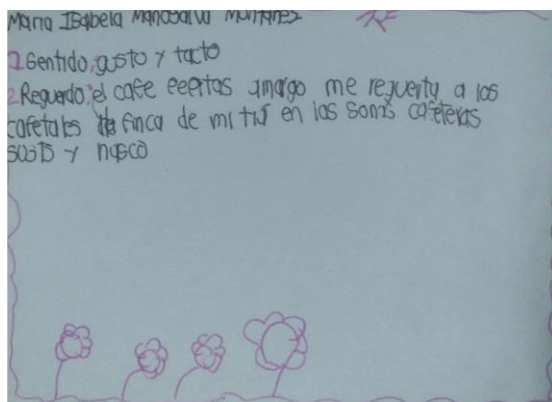 Maria Isabela Manosalva Montañez
1 Sentido: gusto y tacto
2 Reguerdo: el cafe amargo me reguerta a los
cafetales finca de mi tio en las sonas cafeteras
y